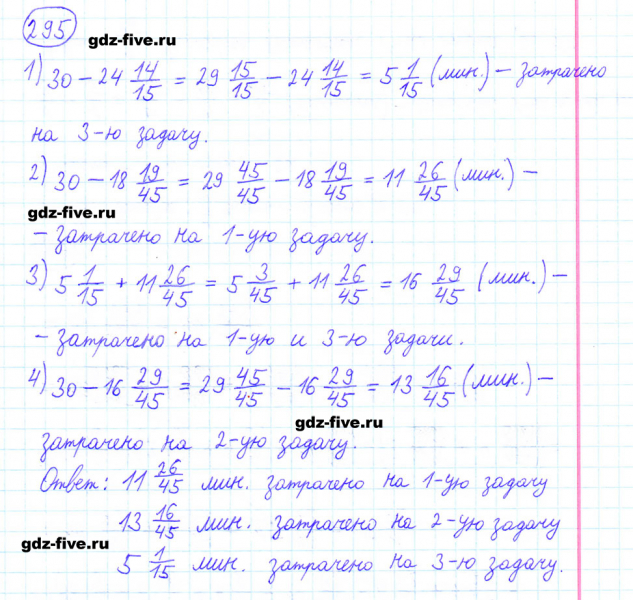 295
gdz-five.ru
1) 30 − 24 14/15 = 29 15/15 − 24 14/15 = 5 1/15 (мин.) − затрачено
на 3-ю задачу.
2) 30 − 18 19/45 = 29 45/45 − 18 19/45 = 11 26/45 (мин.) −
gdz-five.ru
− затрачено на 1-ую задачу.
3) 5 1/15 + 11 26/45 = 5 3/45 + 11 26/45 = 16 29/45 (мин.) −
− затрачено на 1-ую и 3-ю задачи.
4) 30 − 16 29/45 = 29 45/45 − 16 29/45 = 13 16/45 (мин.) −
gdz-five.ru
затрачено на 2-ую задачу.
Ответ: 11 26/45 мин. затрачено на 1-ую задачу
13 16/45 мин. затрачено на 2-ую задачу
gdz-five.ru
5 1/15 мин. затрачено на 3-ю задачу.